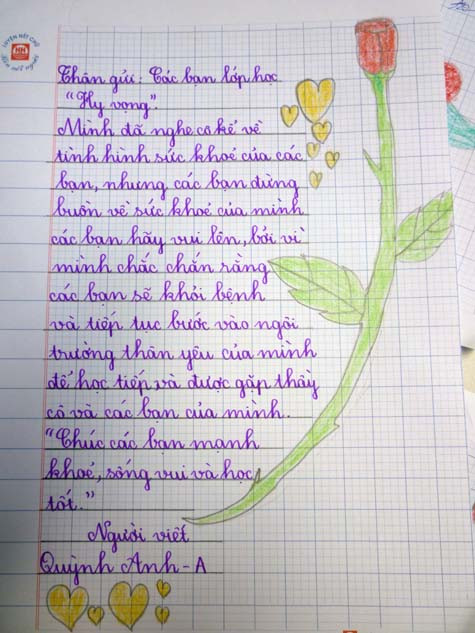 LUYỆN NÉT CHỮ
Rèn nết người
Thân gửi: Các bạn lớp học
"Hy vọng".
Mình đã nghe cô kể về
tình hình sức khoẻ của các
bạn, nhưng các bạn đừng
buồn về sức khoẻ của mình
các bạn hãy vui lên, bởi vì
mình chắc chắn rằng
các bạn sẽ khỏi bệnh
và tiếp tục bước vào ngôi
trường thân yêu của mình
để học tiếp và được gặp thầy
cô và các bạn của mình.
"Chúc các bạn mạnh
khoẻ, sống vui và học
tốt."
Người viết
Quỳnh Anh - A